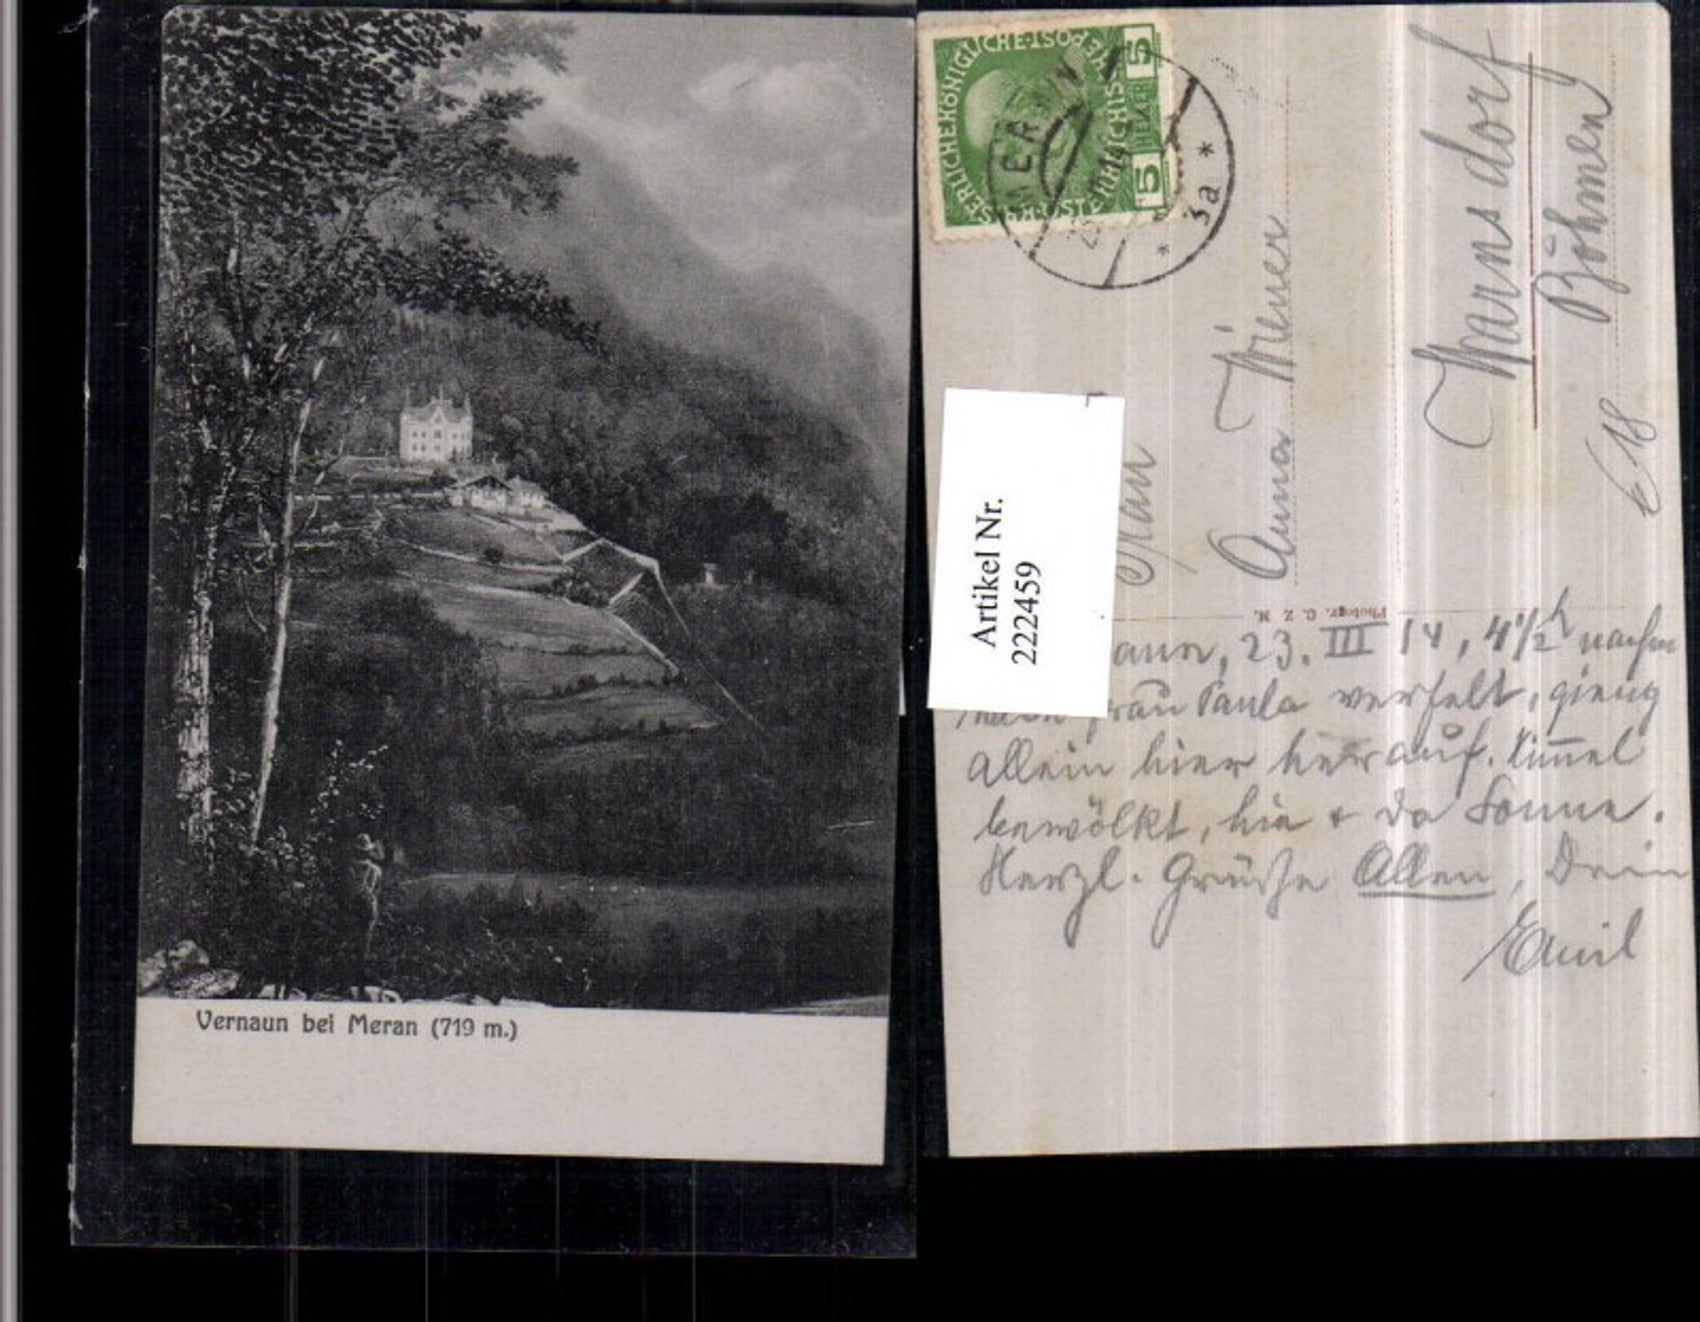 Vernaun bei Meran (719 m.)
KAISERLICHE KÖNIGLICHE ÖSTERREICHISCHE POST
5 HELLER 5
MERAN
14
* 3a *
Artikel Nr.
2222459
Frau
Anna Wiener
Warnsdorf
Böhmen
E 18
Photogr. C. Z. M.
aun, 23. III 14, 4 1/2 h nachm
Frau Paula verfelt, gieng
allein hier herauf. Himmel
bewölkt, hie + da Sonne.
Herzl. Grüße Allen, Dein
Emil